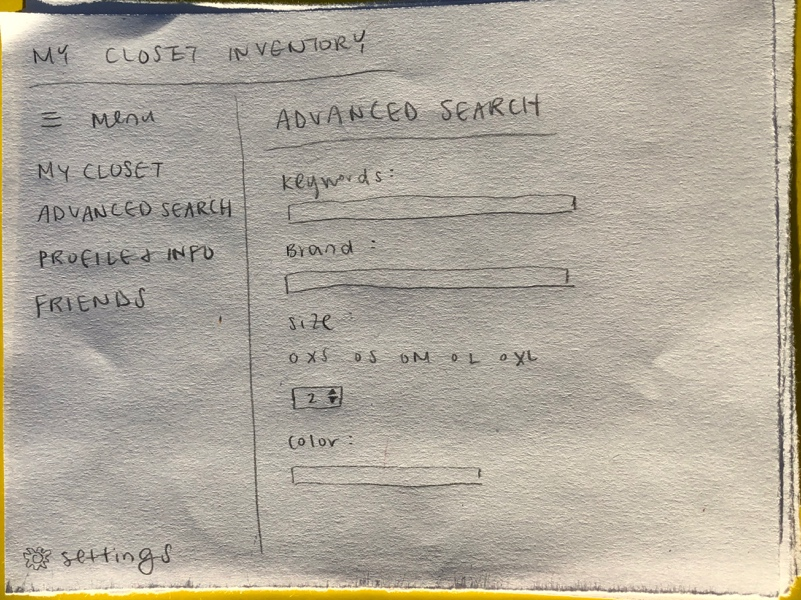 MY CLOSET INVENTORY
Menu
MY CLOSET
ADVANCED SEARCH
PROFILE & INFO
FRIENDS
settings
ADVANCED SEARCH
Keywords:
Brand :
Size :
XS S M L XL
2
Color :